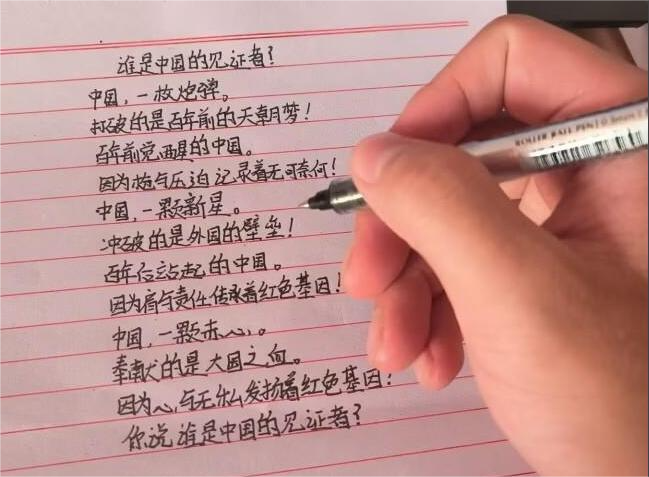 谁是中国的见证者？
中国，一枚炮弹。
打破的是百年前的天朝梦！
百年前觉醒的中国。
因为枪与压迫记录着无可奈何！
中国，一颗新星。
冲破的是外国的壁垒！
百年后站起的中国。
因为肩与责任传承着红色基因！
中国，一颗赤心。
奉献的是大国之血。
因为心与无私发扬着红色基因！
你说谁是中国的见证者？
ROLLER BALL PEN